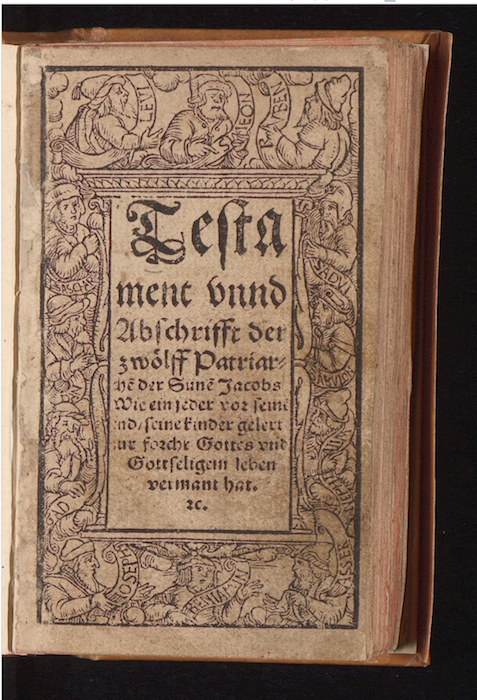 LEVI
SIMEON
RVBEEN
Testa
ment vnnd
Abschrifft der
zwölff Patriar⸗
hē der Sunē Jacobs
Wie ein jeder vor seinē
nd/ seine kinder gelert
ur forcht Gottes vnd
Gottseligem leben
vermant hat.
ꝛc.
ISASCHAR
GAD
IOSEPH
BENIAMIN
ASSER